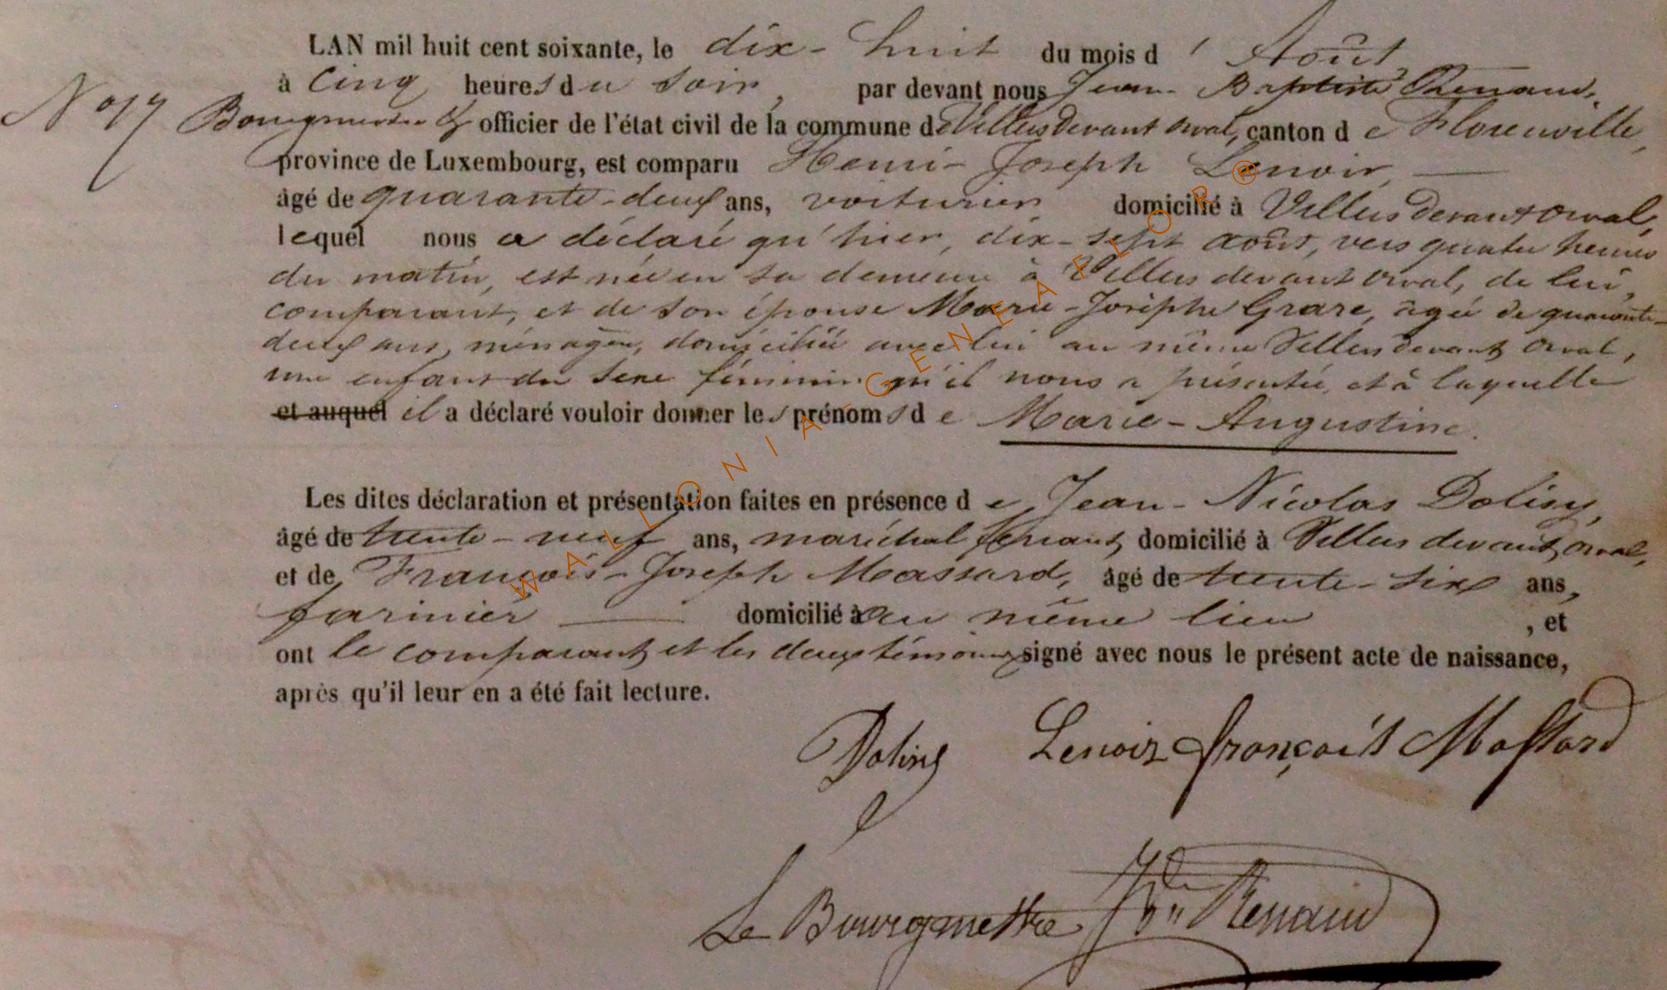 LAN mil huit cent soixante, le dix-huit du mois d'Août,
à Cinq heures du soir, par devant nous Jean-Baptiste Renaud,
N° 17
Bourgmestre & officier de l'état civil de la commune de Villers devant orval, canton de Florenville,
province de Luxembourg, est comparu Henri-Joseph Lenoir,
âgé de quarante-deux ans, voiturier domicilié à Villers devant orval,
lequel nous a déclaré qu'hier, dix-sept août, vers quatre heures
du matin, est née en sa demeure à Villers devant orval, de lui,
comparant, et de son épouse Marie-Josèphe Grare, âgée de quarante-
deux ans, ménagère, domiciliée avec lui au même Villers devant orval,
une enfant du sexe féminin qu'il nous a présentée, et à laquelle
et auquel il a déclaré vouloir donner les prénoms de Marie-Augustine.
Les dites déclaration et présentation faites en présence de Jean-Nicolas Dolisy,
âgé de trente-neuf ans, maréchal ferrant, domicilié à Villers devant orval,
et de François-Joseph Massard, âgé de trente-six ans,
farinier domicilié à au même lieu, et
ont le comparant et les deux témoins signé avec nous le présent acte de naissance,
après qu'il leur en a été fait lecture.
Dolisy Lenoir françois Massard
Le Bourgmestre Jn Bte Renaud
WALLONIA-GENEAFLOR®